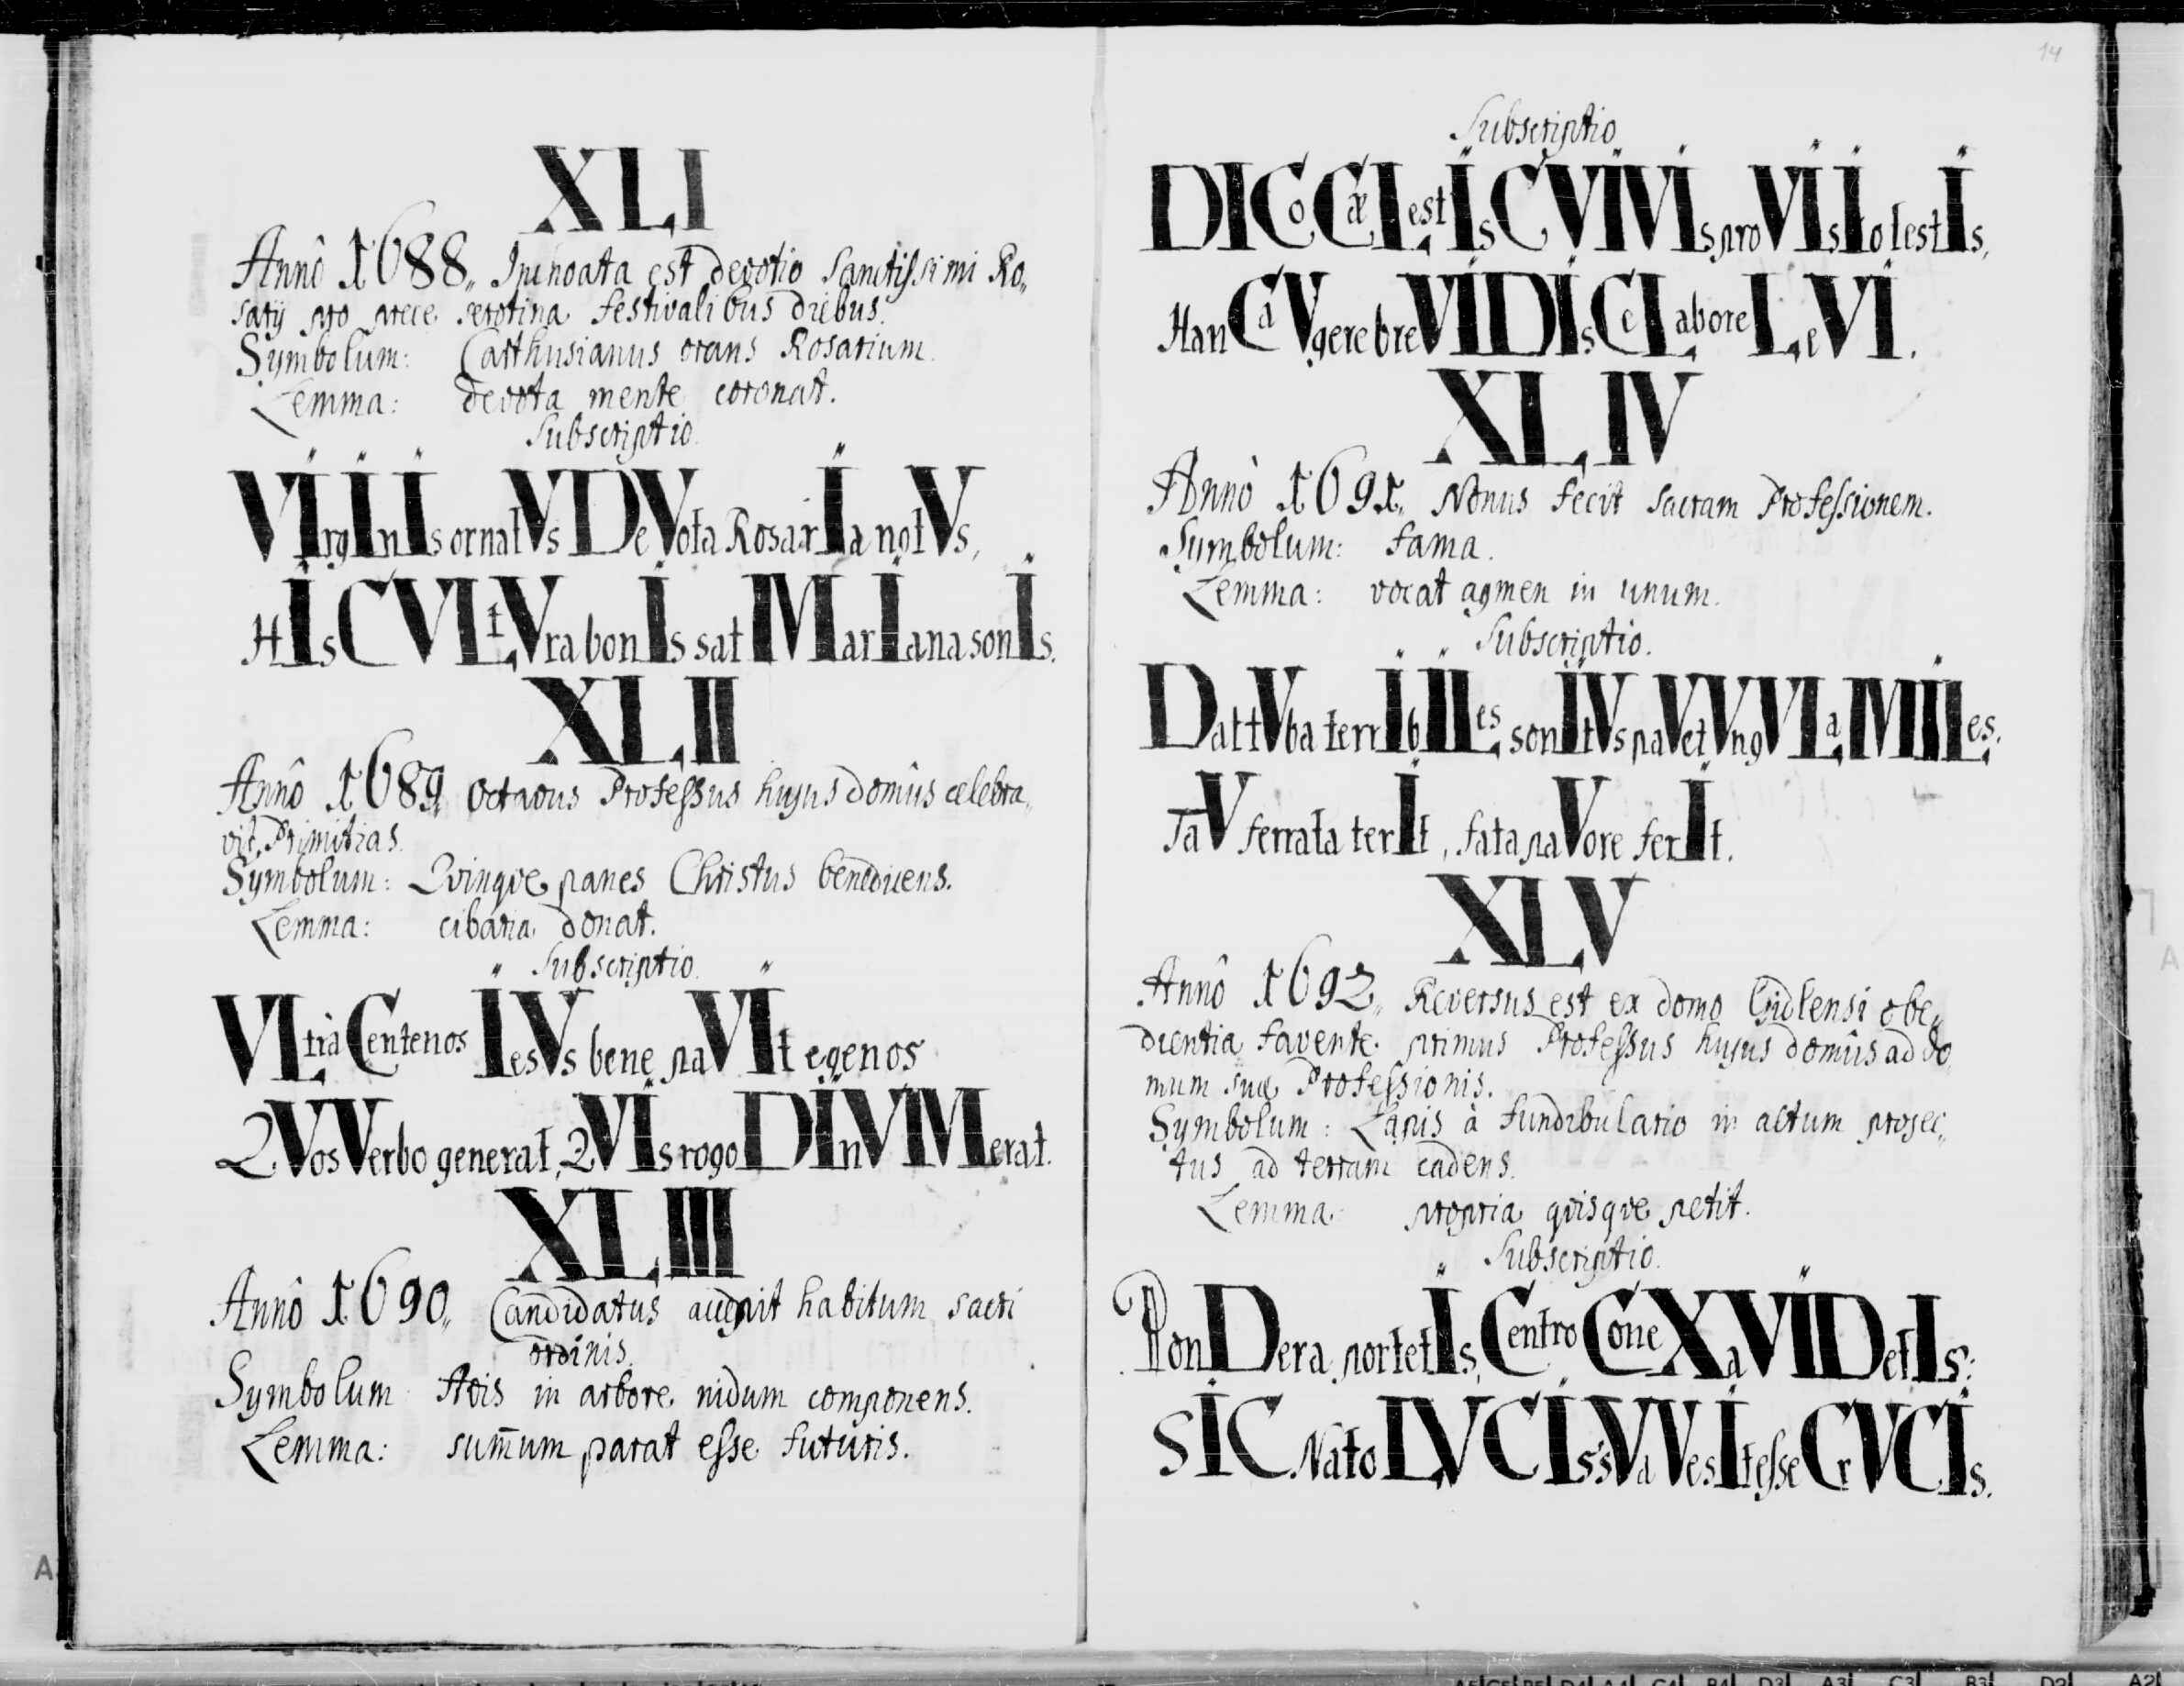 XLI
Annô 1688,, Inchoata est devotio Sanctissimi Ro,,
sarij pro prece serotina festivalibus diebus.
Symbolum: Carthusianus orans Rosarium.
Lemma: devota mente coronat.
Subscriptio.
VIrgInIs ornatVs DeVota RosarIa notVs,
HIs CVLtVra bonIs sat MarIana sonIs.
XLII
Annô 1689,, Octavus Professus hujus domûs celebra,,
vit Primitias.
Symbolum: Qvinqve panes Christus benedicens.
Lemma: cibaria donat.
Subscriptio.
VLtrà Centenos IesVs bene paVIt egenos
QVos Verbo generat, QVIs rogo DInVMerat.
XLIII
Annô 1690,, Candidatus accepit habitum sacri
ordinis.
Symbolum Avis in arbore nidum componens.
Lemma: sum̄um parat esse futuris.
14
Subscriptio
DICo CæLestIs CVIVIs pro VIsIo lestIs,
HanC aVgere breVI DIsCe Labore LeVI.
XLIV
Annò 1691,, Nonus fecit sacram Professionem.
Symbolum: fama.
Lemma: vocat agmen in unum.
Subscriptio.
Dat tVba terrIbILes sonItVs paVet VngVLa MILes.
TaV ferrata terIt, fata paVore ferIt.
XLV
Annô 1692,, Reversus est ex domo Gidlensi obe,,
dientia favente primus Professus hujus domûs ad do,,
mum suæ Professionis.
Symbolum: Lapis à fundibulario in altum projec,,
tus ad terram cadens.
Lemma propria qvisqve petit.
Subscriptio.
PonDera portetIs, Centro ConeXa VIDetIs:
SIC Nato LVCIs sVa VesIt esse CrVCIs.